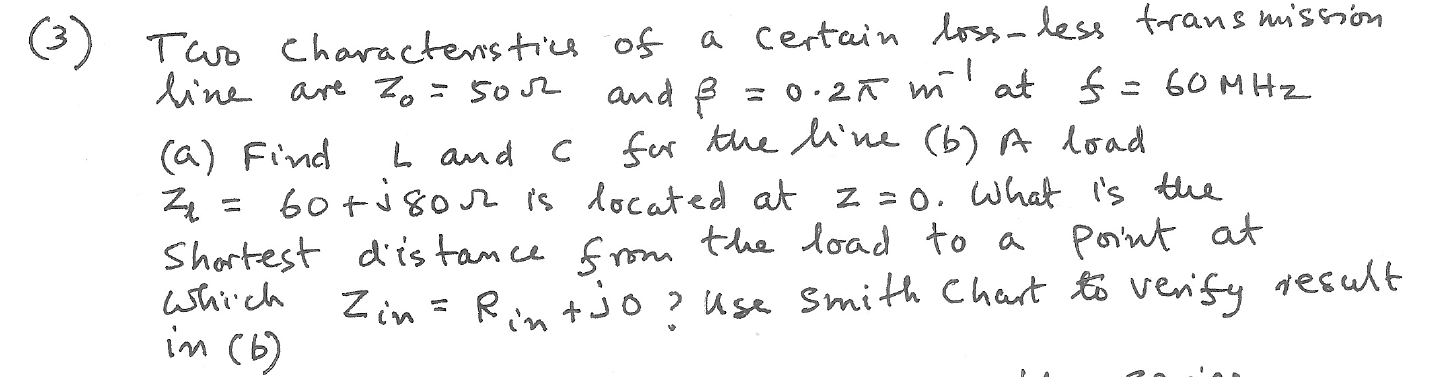 (3) Two characteristics of a certain loss-less transmission
line are Z₀ = 50Ω and β = 0.2π m⁻¹ at f = 60 MHz
(a) Find L and C for the line (b) A load
Zₗ = 60 + j80Ω is located at z = 0. What is the
shortest distance from the load to a point at
which Zin = Rin + j0 ? Use Smith Chart to verify result
in (b)